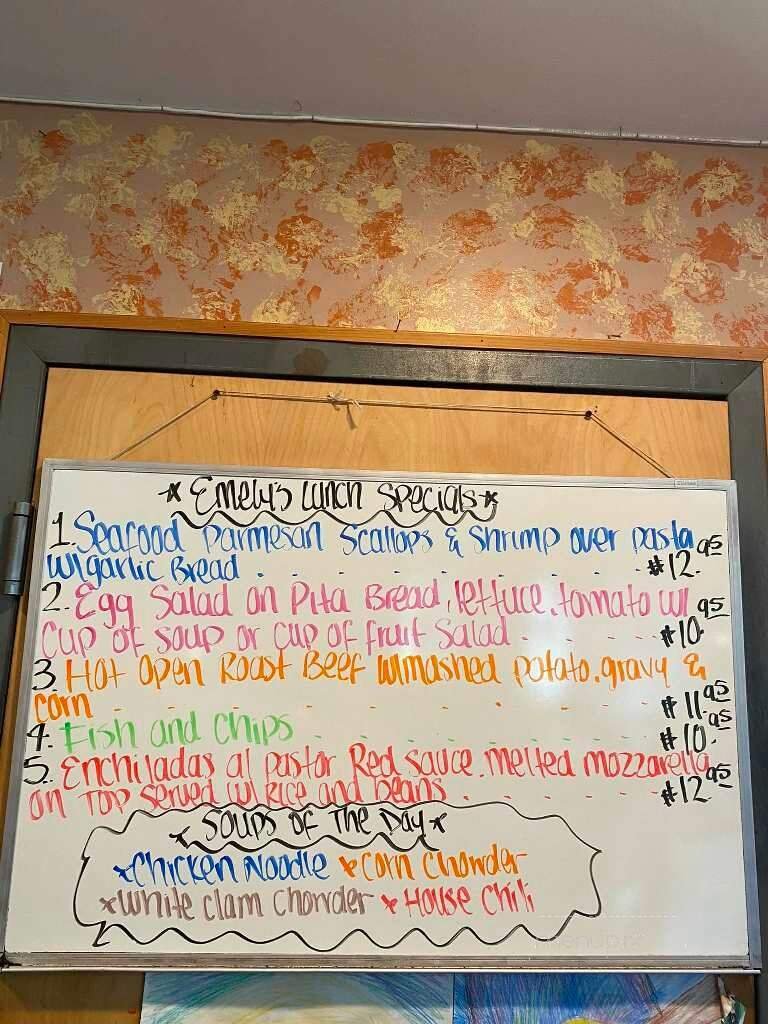 * Emely's Lunch Specials *
1. Seafood Parmesan Scallops & Shrimp over pasta
w/garlic Bread . - - - - - - - $12.95
2. Egg Salad on Pita Bread, lettuce, tomato w/
cup of soup or cup of fruit Salad - - - - $10.95
3. Hot Open Roast Beef w/mashed potato, gravy &
corn - - - - - - - - - $11.95
4. Fish and Chips - - - - - - $10.95
5. Enchiladas al pastor Red sauce, melted mozzarella
on top served w/ Rice and beans . - - - - $12.95
* Soups of The Day *
* Chicken Noodle * Corn Chowder
* White Clam Chowder * House Chili